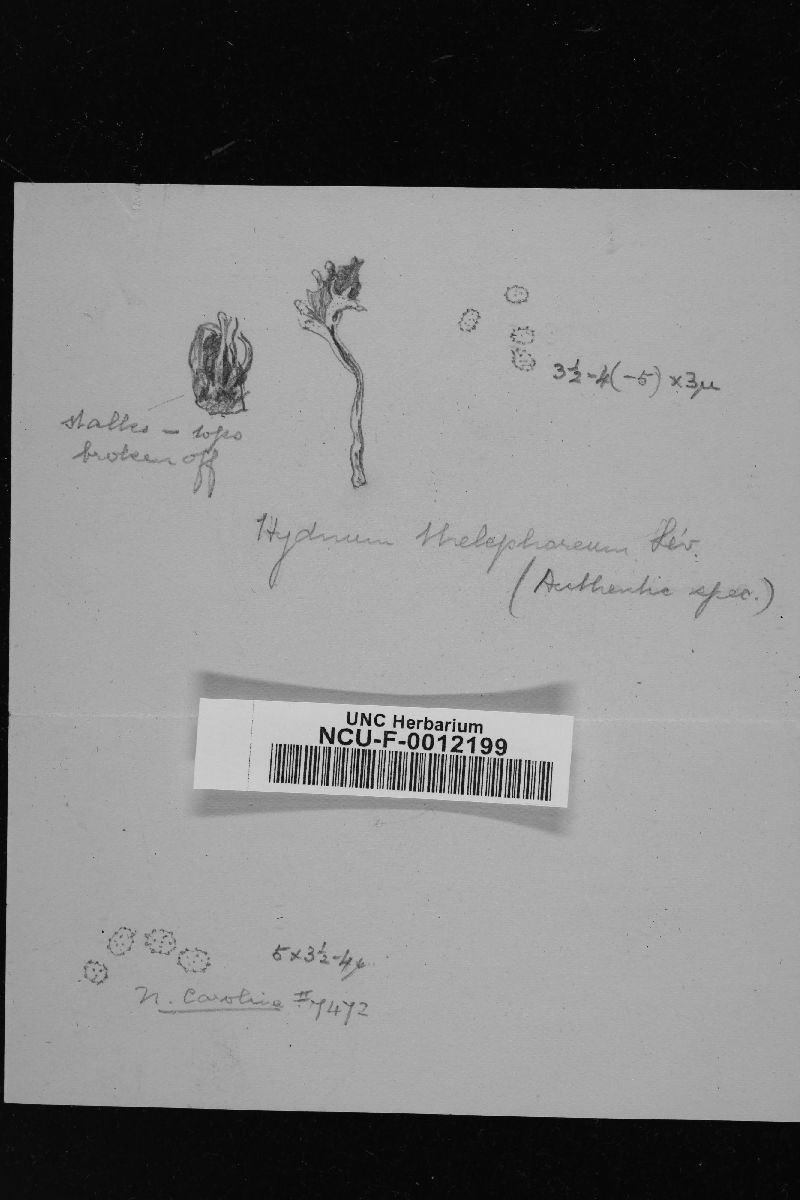 3½-4(-5) × 3µ
stalks – tops
broken off
Hydnum thelephoreum Lév.
(Authentic spec.)
UNC Herbarium
NCU-F-0012199
5 × 3½-4µ
N. Carolina #7472